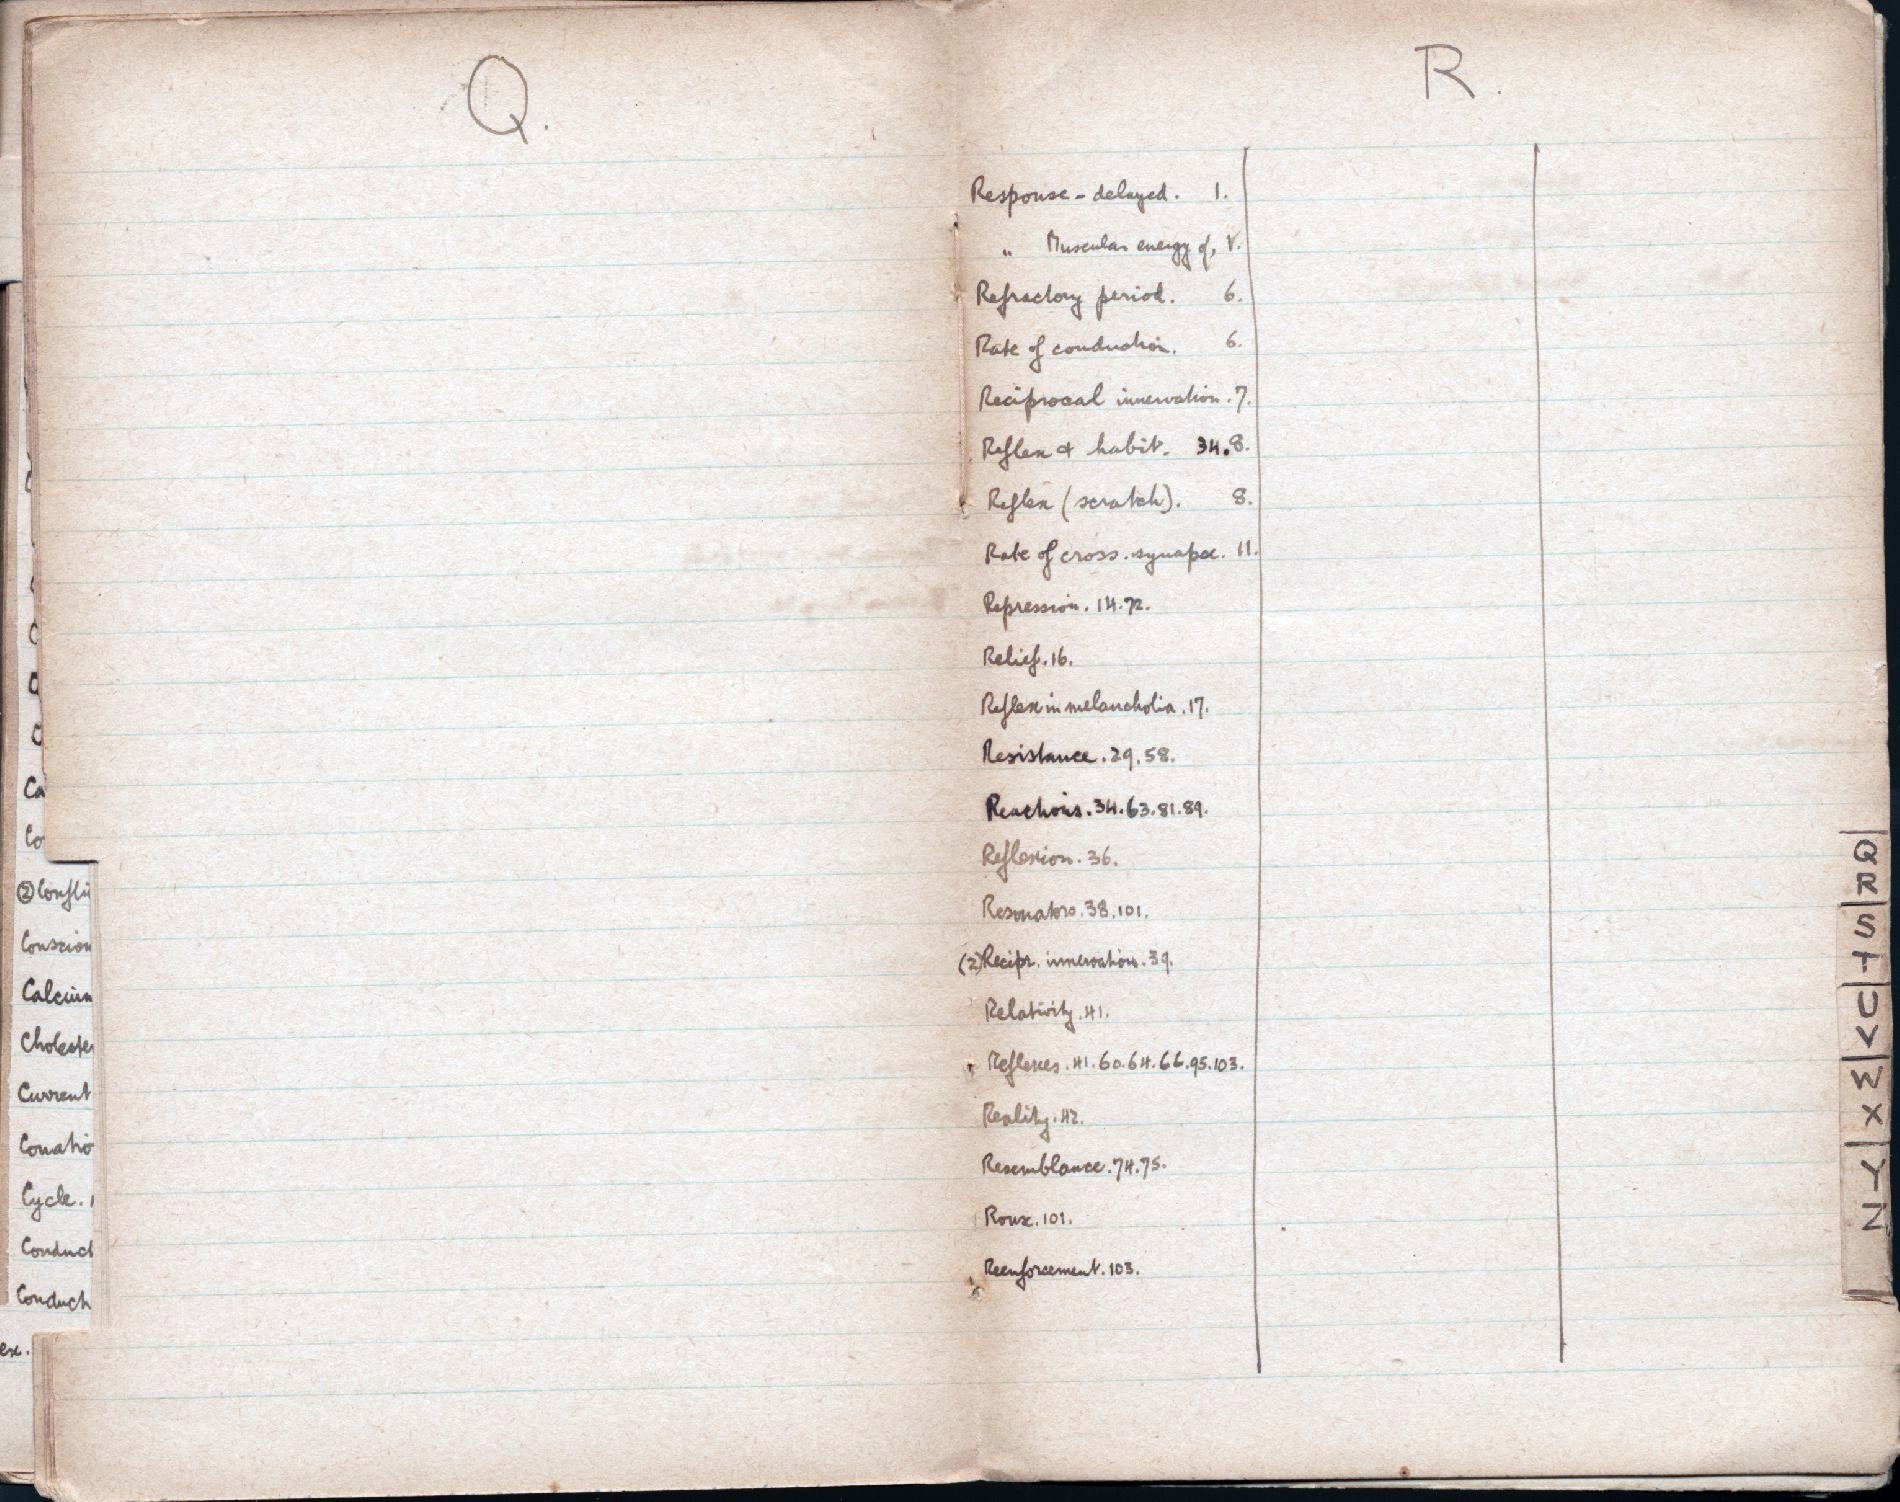 Q.
Ca
Co
② Confli
Conscion
Calcium
Choleste
Current
Conatio
Cycle.
Conduct
Conduct
ex.
R.
Response - delayed. 1.
" Muscular energy of,
Refractory period. 6.
Rate of conduction. 6.
Reciprocal innervation. 7.
Reflex & habit. 34. 8.
Reflex (scratch). 8.
Rate of cross. synapse. 11.
Repression. 14. 72.
Relief. 16.
Reflex in melancholia. 17.
Resistance. 29. 58.
Reactions. 34. 63. 81. 89.
Reflexion. 36.
Resonators. 38. 101.
(2) Recipr. innervation. 39.
Relativity. 41.
Reflexes. 41. 60. 64. 66. 95. 103.
Reality. 42.
Resemblance. 74. 75.
Roux. 101.
Reenforcement. 103.
Q
R
S
T
U
V
W
X
Y
Z